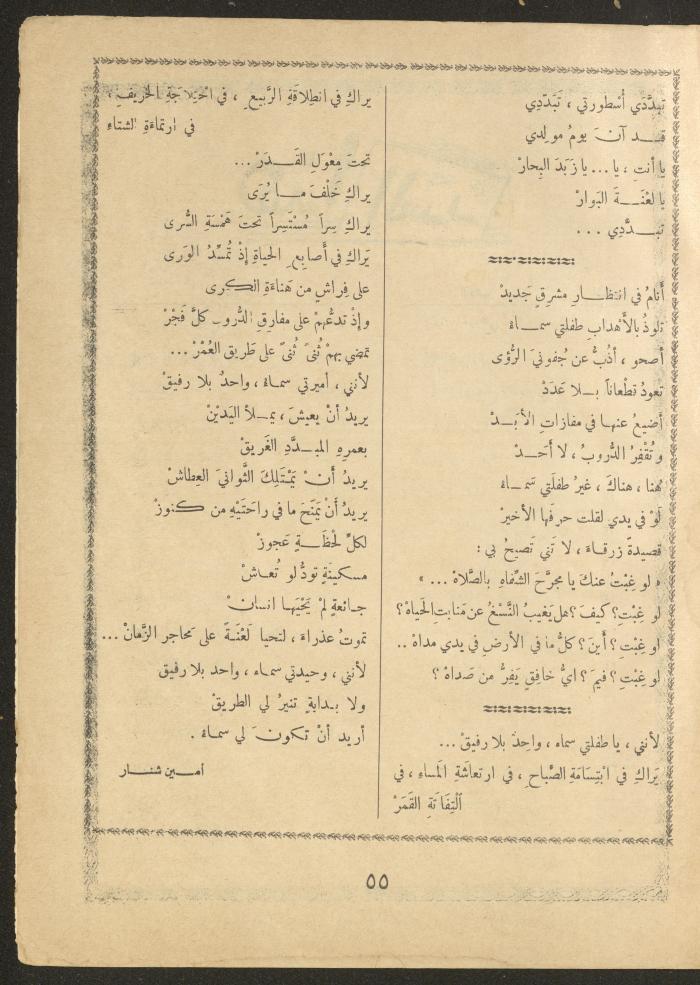 تبدَّدي أُسْطورتي ، تَبَدّدِي
قد آنَ يومُ مولدي
يا أنتِ ، يا... يا زَبَدَ البِحارْ
يا لعْنَةَ البَوارْ
تبدَّدِي ...
أَنَامُ في انتظارِ مشرقٍ جَديدْ
تلوذُ بالأَهْدابِ طفلتي سماءْ
أَصحو ، أَذُبُّ عن جُفونيَ الرُّؤى
تعودُ قطْعاناً بلا عَدَدْ
أَضيعُ عنها في مفازاتِ الأَبَدْ
وتُقْفِرُ الدُّروبُ ، لا أَحَدْ
هُنا ، هناكَ ، غيرُ طفلَتي سَماءْ
لَوْ في يدي لقلت حرفَها الأخيرْ
قصيدةً زرقاءَ ، لا تَني تَصيحُ بي :
« لو غِبْتُ عنكَ يا مجرَّحَ الشِّفاهِ بالصَّلاهْ ... »
لو غِبْتِ؟ كيفَ؟ هل يَغيبُ النَّسْغُ عن مَنابتِ الحَياهْ؟
لو غِبْتِ؟ أَينَ؟ كلُّ ما في الأَرضِ في يدي مداهْ ..
لو غِبْتِ؟ فيمَ؟ ايُّ خافِقٍ يَفِرُّ من صَداهْ ؟
لأنني ، يا طفلتي سماء ، واحِدٌ بلا رفيقْ ...
يَرَاكِ في ابْتِسَامَةِ الصَّباحِ ، في ارتعاشَةِ المَساءِ ، في
اَلْتِفَاتَةِ القَمَرْ
يراكِ في انطِلاقَةِ الرَّبيعِ ، في اختِلاجَةِ الخَريفِ ،
في ارتماءَةِ الشتاءِ
تحتَ مِعْوَلِ القَدَرْ ...
يراكِ خَلْفَ ما يُرَى
يراكِ سِراً مُسْتَسِراً تحتَ هَمْسَةِ السُّرى
يَراكِ في أَصابِعِ الحياةِ إذْ تُمسِّدُ الوَرى
على فِراشٍ من هَناءَةِ الكرى
وإذْ تدعُّهمْ على مفارقِ الدُّروبِ كلَّ فَجْرْ
تمضي بِهمْ ثُنىً ثُنىً على طَريقِ العُمْرْ ...
لأَنني ، أَميرتي سماءْ ، واحدٌ بلا رفيقْ
يريدُ أَنْ يعيشَ ، يملأَ اليَدَيْنْ
بعمرِهِ المبدَّدِ الغَريقْ
يريدُ أَنْ يَمْتَلِكَ الثَّوانيَ العِطاشْ
يريدُ أَنْ يَمنَحَ ما في راحَتَيْهِ من كنوزْ
لكلِّ لحْظَةٍ عَجوزْ
مسكينَةٍ تودُّ لو تُعاشْ
جائعةٍ لمْ يَحْيَها انسانْ
تموتُ عذراءَ ، لتحيا لَعْنَةً على مَحاجرِ الزَّمانْ ...
لأَنني ، وحيدتي سماء ، واحد بلا رفيق
ولا بدايةٍ تنيرُ لي الطريقْ
أُريد أَنْ تكونَ لي سماءْ .
أمين شنار
٥٥